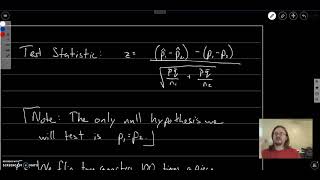 Test Statistic: z = (p̂₁-p̂₂) - (p₁-p₂) / √(p̄q̄/n₁ + p̄q̄/n₂)
Note: The only null hypothesis we
will test is p₁=p₂.
We flip two 100 times a piece